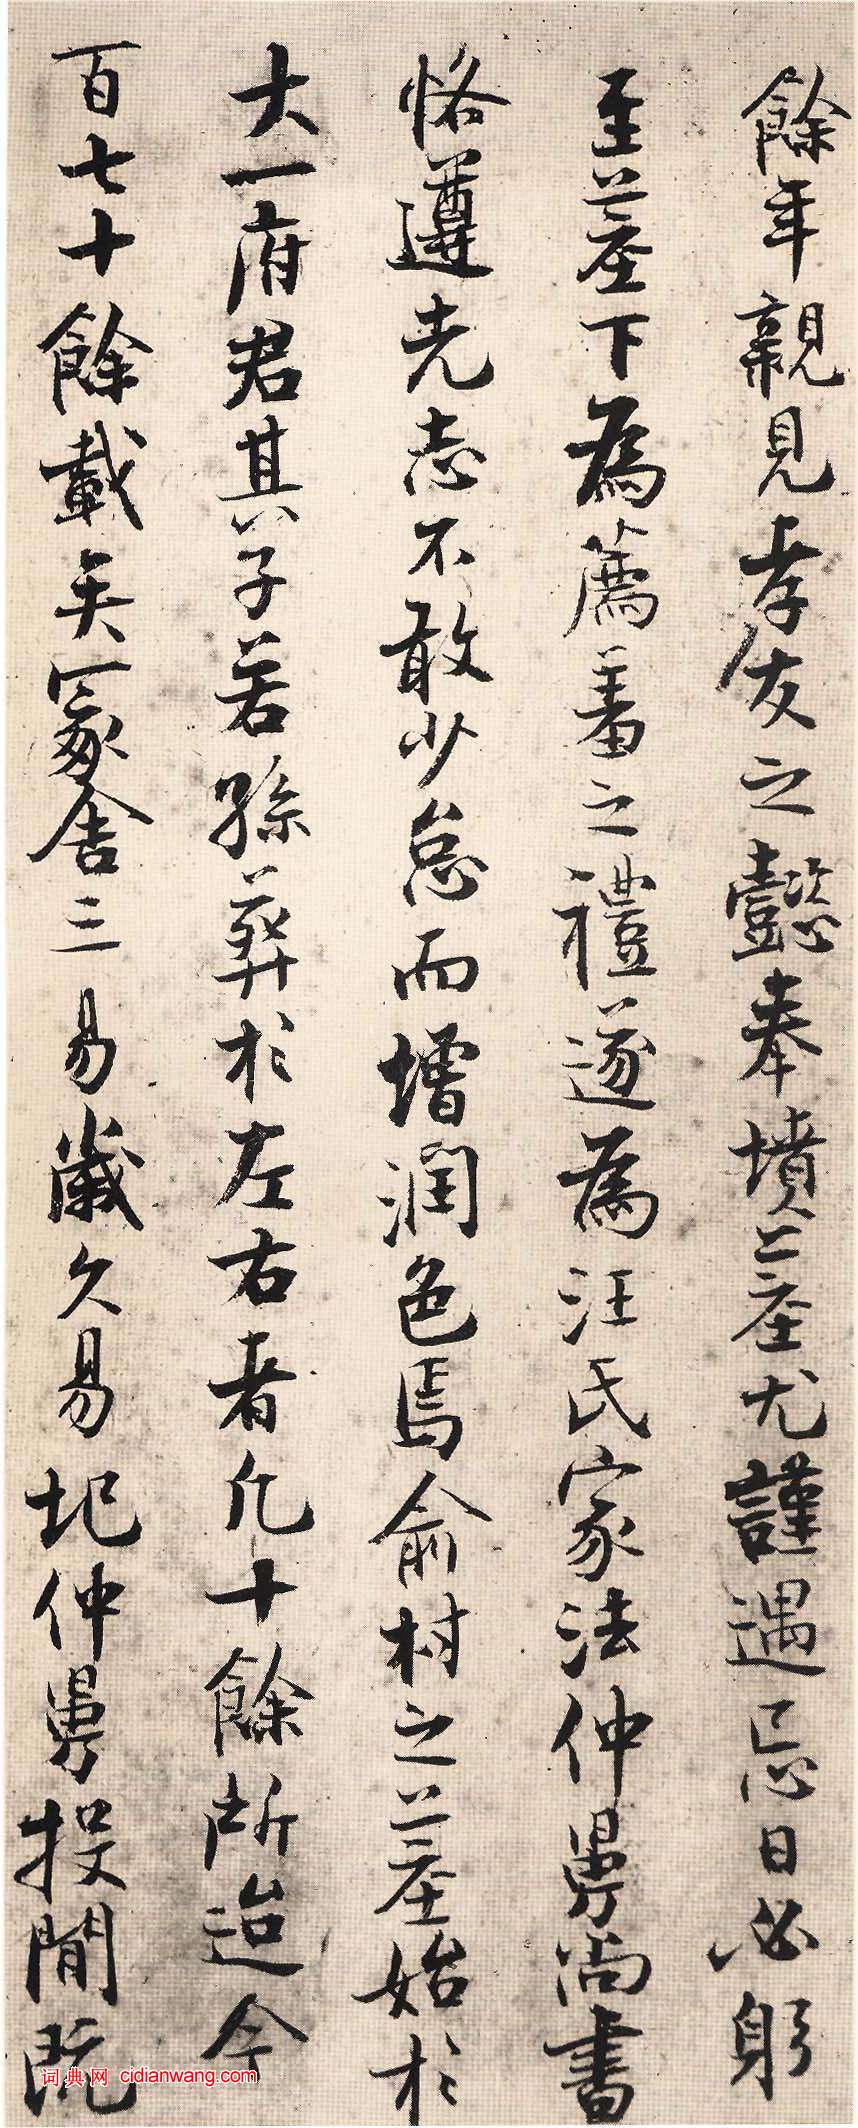 餘年親見孝友之懿奉墳墓尤謹遇忌日必躬
至墓下為薦羞之禮遂為汪氏家法仲舅尚書
恪遵先志不敢少怠而增潤色焉俞村之墓始於
大一府君其子若孫葬於左右者凡十餘所迨今
百七十餘載矣冢舍三易歲久易圮仲舅投閒既
词典网 cidianwang.com